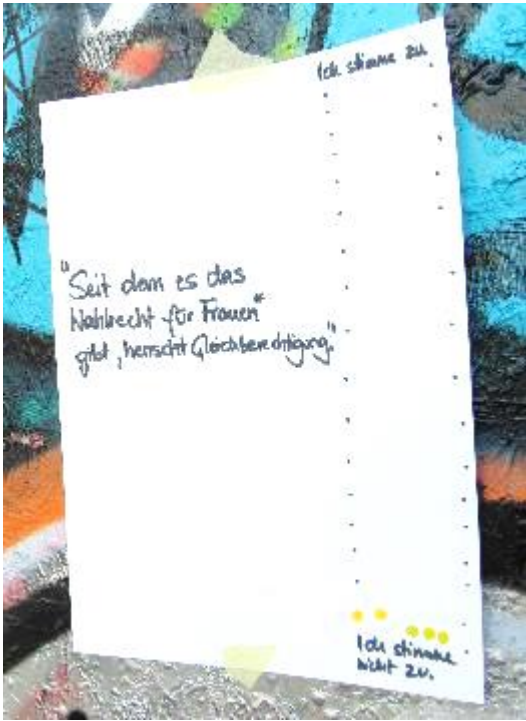 Ich stimme zu.
"Seit dem es das
Wahlrecht für Frauen*
gibt, herrscht Gleichberechtigung."
Ich stimme
nicht zu.